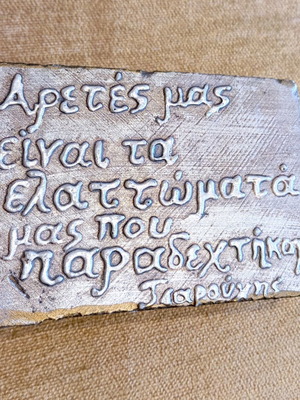 Αρετές μας
είναι τα
ελαττώματά
μας που
παραδεχτήκα
Τσαρούχης